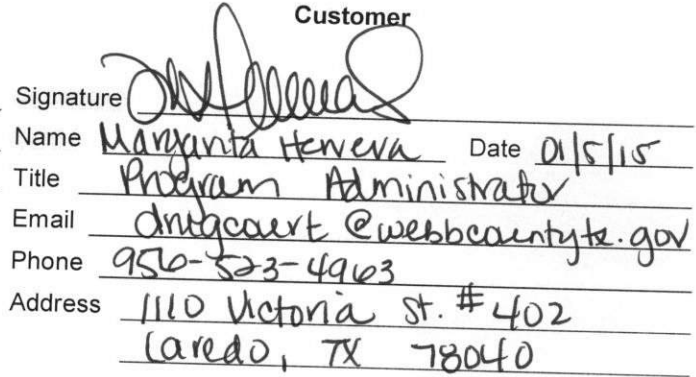 Customer
Signature
Name Margarita Herrera Date 01/5/15
Title Program Administrator
Email drugcourt@webbcountytx.gov
Phone 956-523-4963
Address 1110 Victoria St. #402
Laredo, TX 78040